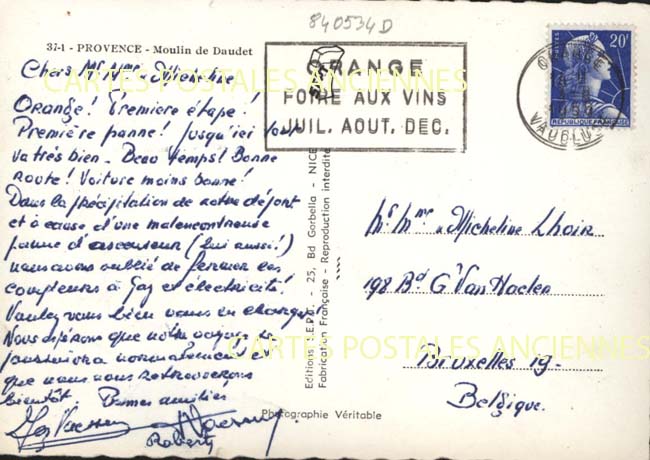 840534D
37-1 - PROVENCE - Moulin de Daudet
Chers Mr Mme & Micheline
Orange! Première étape!
Première panne! Jusqu'ici tout
va très bien. Beau temps! Bonne
route! Voiture moins bonne!
Dans la précipitation de notre départ
et à cause d'une malencontreuse
panne d'ascenseur (lui aussi!)
nous avons oublié de fermer les
compteurs à gaz et électricité!
Voulez vous bien vous en charger!
Nous espérons que notre voyage se
poursuivra normalement et
que nous nous retrouverons
bientôt. Bonnes amitiés
Robert
ORANGE
FOIRE AUX VINS
JUIL. AOUT. DEC.
ORANGE
VAUCLUSE
20F
REPUBLIQUE FRANCAISE
Editions - 25, Bd Gorbella - NICE
Fabrication Française - Reproduction interdite
Mr Mme & Micheline Lhoir
198 Bd G' Van Haelen
Bruxelles 19-
Belgique.
Photographie Véritable
CARTES POSTALES ANCIENNES
CARTES POSTALES ANCIENNES